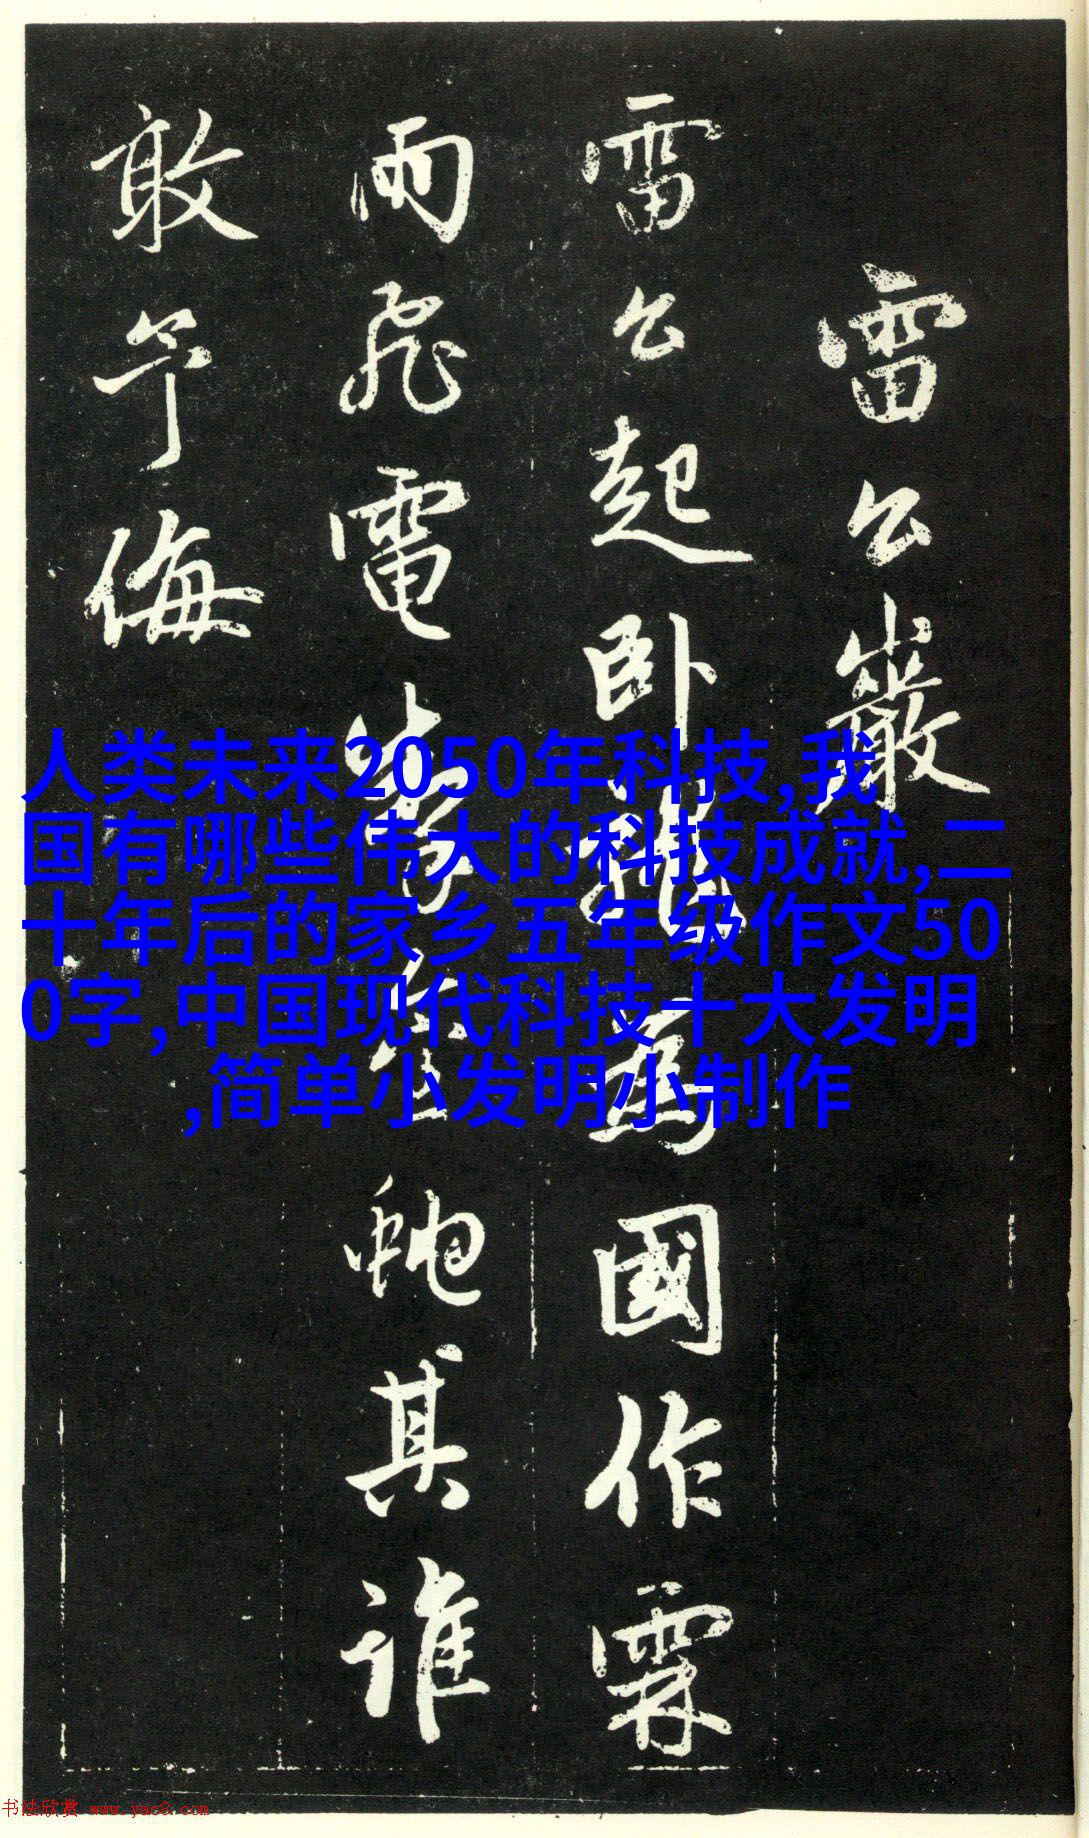 雷公巖
雷公起卧龍為國作霖
雨飛電掣金蛇其誰
敢予侮
人类未来2050年科技,我
国有哪些伟大的科技成就,二
十年后的家乡五年级作文50
0字,中国现代科技十大发明
,简单小发明小制作
书法欣赏 www.yac8.com